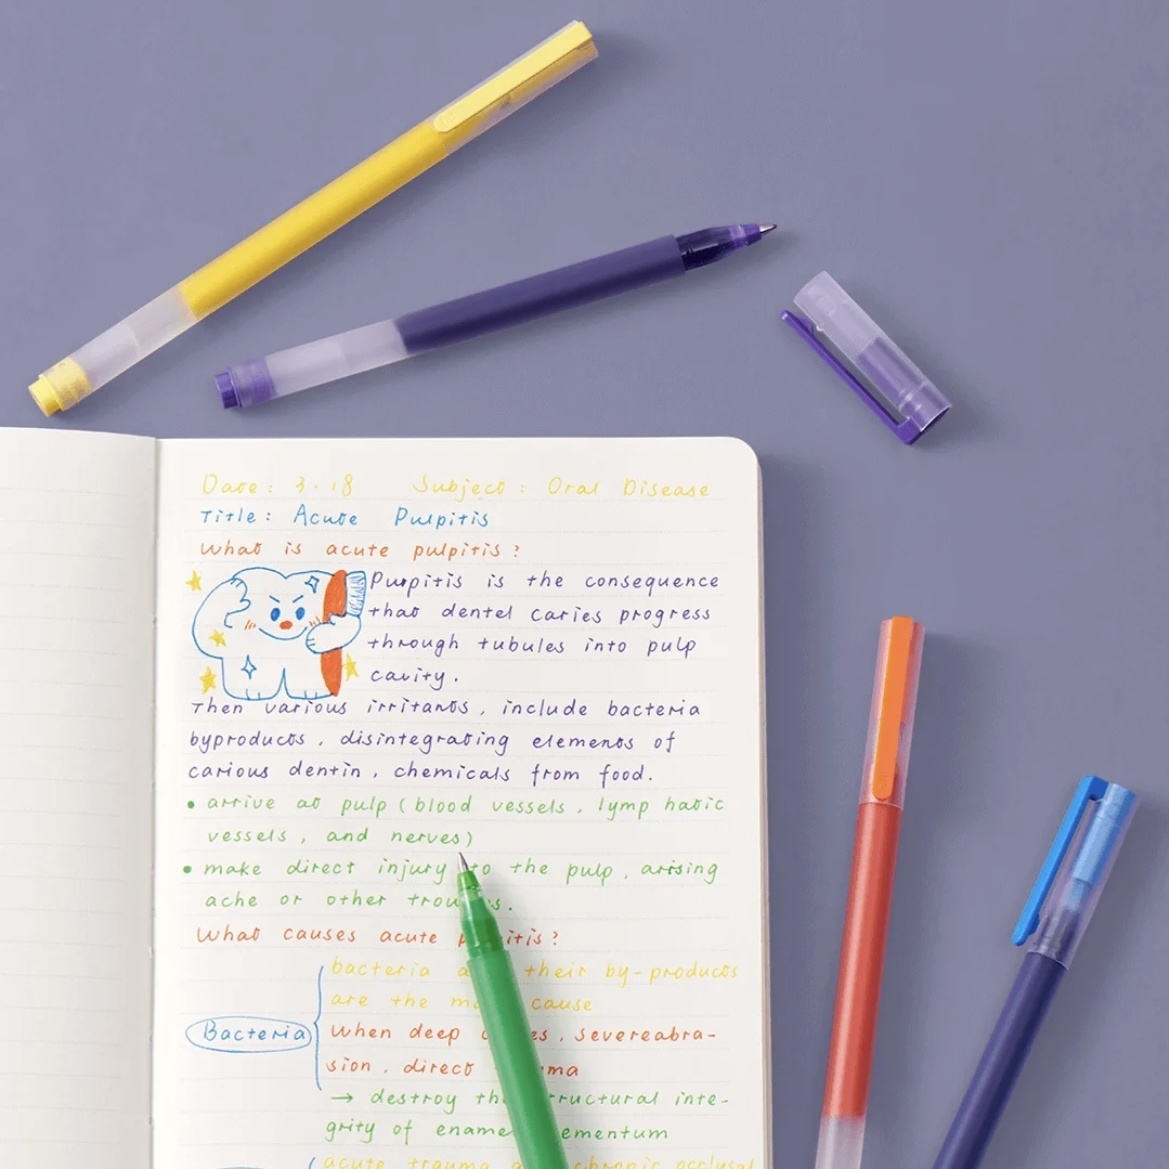 Date: 3.18 Subject: Oral Disease
Title: Acute Pulpitis
What is acute pulpitis?
Pulpitis is the consequence
that dentel caries progress
through tubules into pulp
cavity.
Then various irritants, include bacteria
byproducts, disintegrating elements of
carious dentin, chemicals from food.
• arrive at pulp (blood vessels, lymp hatic
vessels, and nerves)
• make direct injury to the pulp, arising
ache or other
What causes acute
bacteria their by-products
are the cause
Bacteria
When deep severeabra-
sion, direct
→ destroy inte-
grity of
acute trauma chronic occlusal